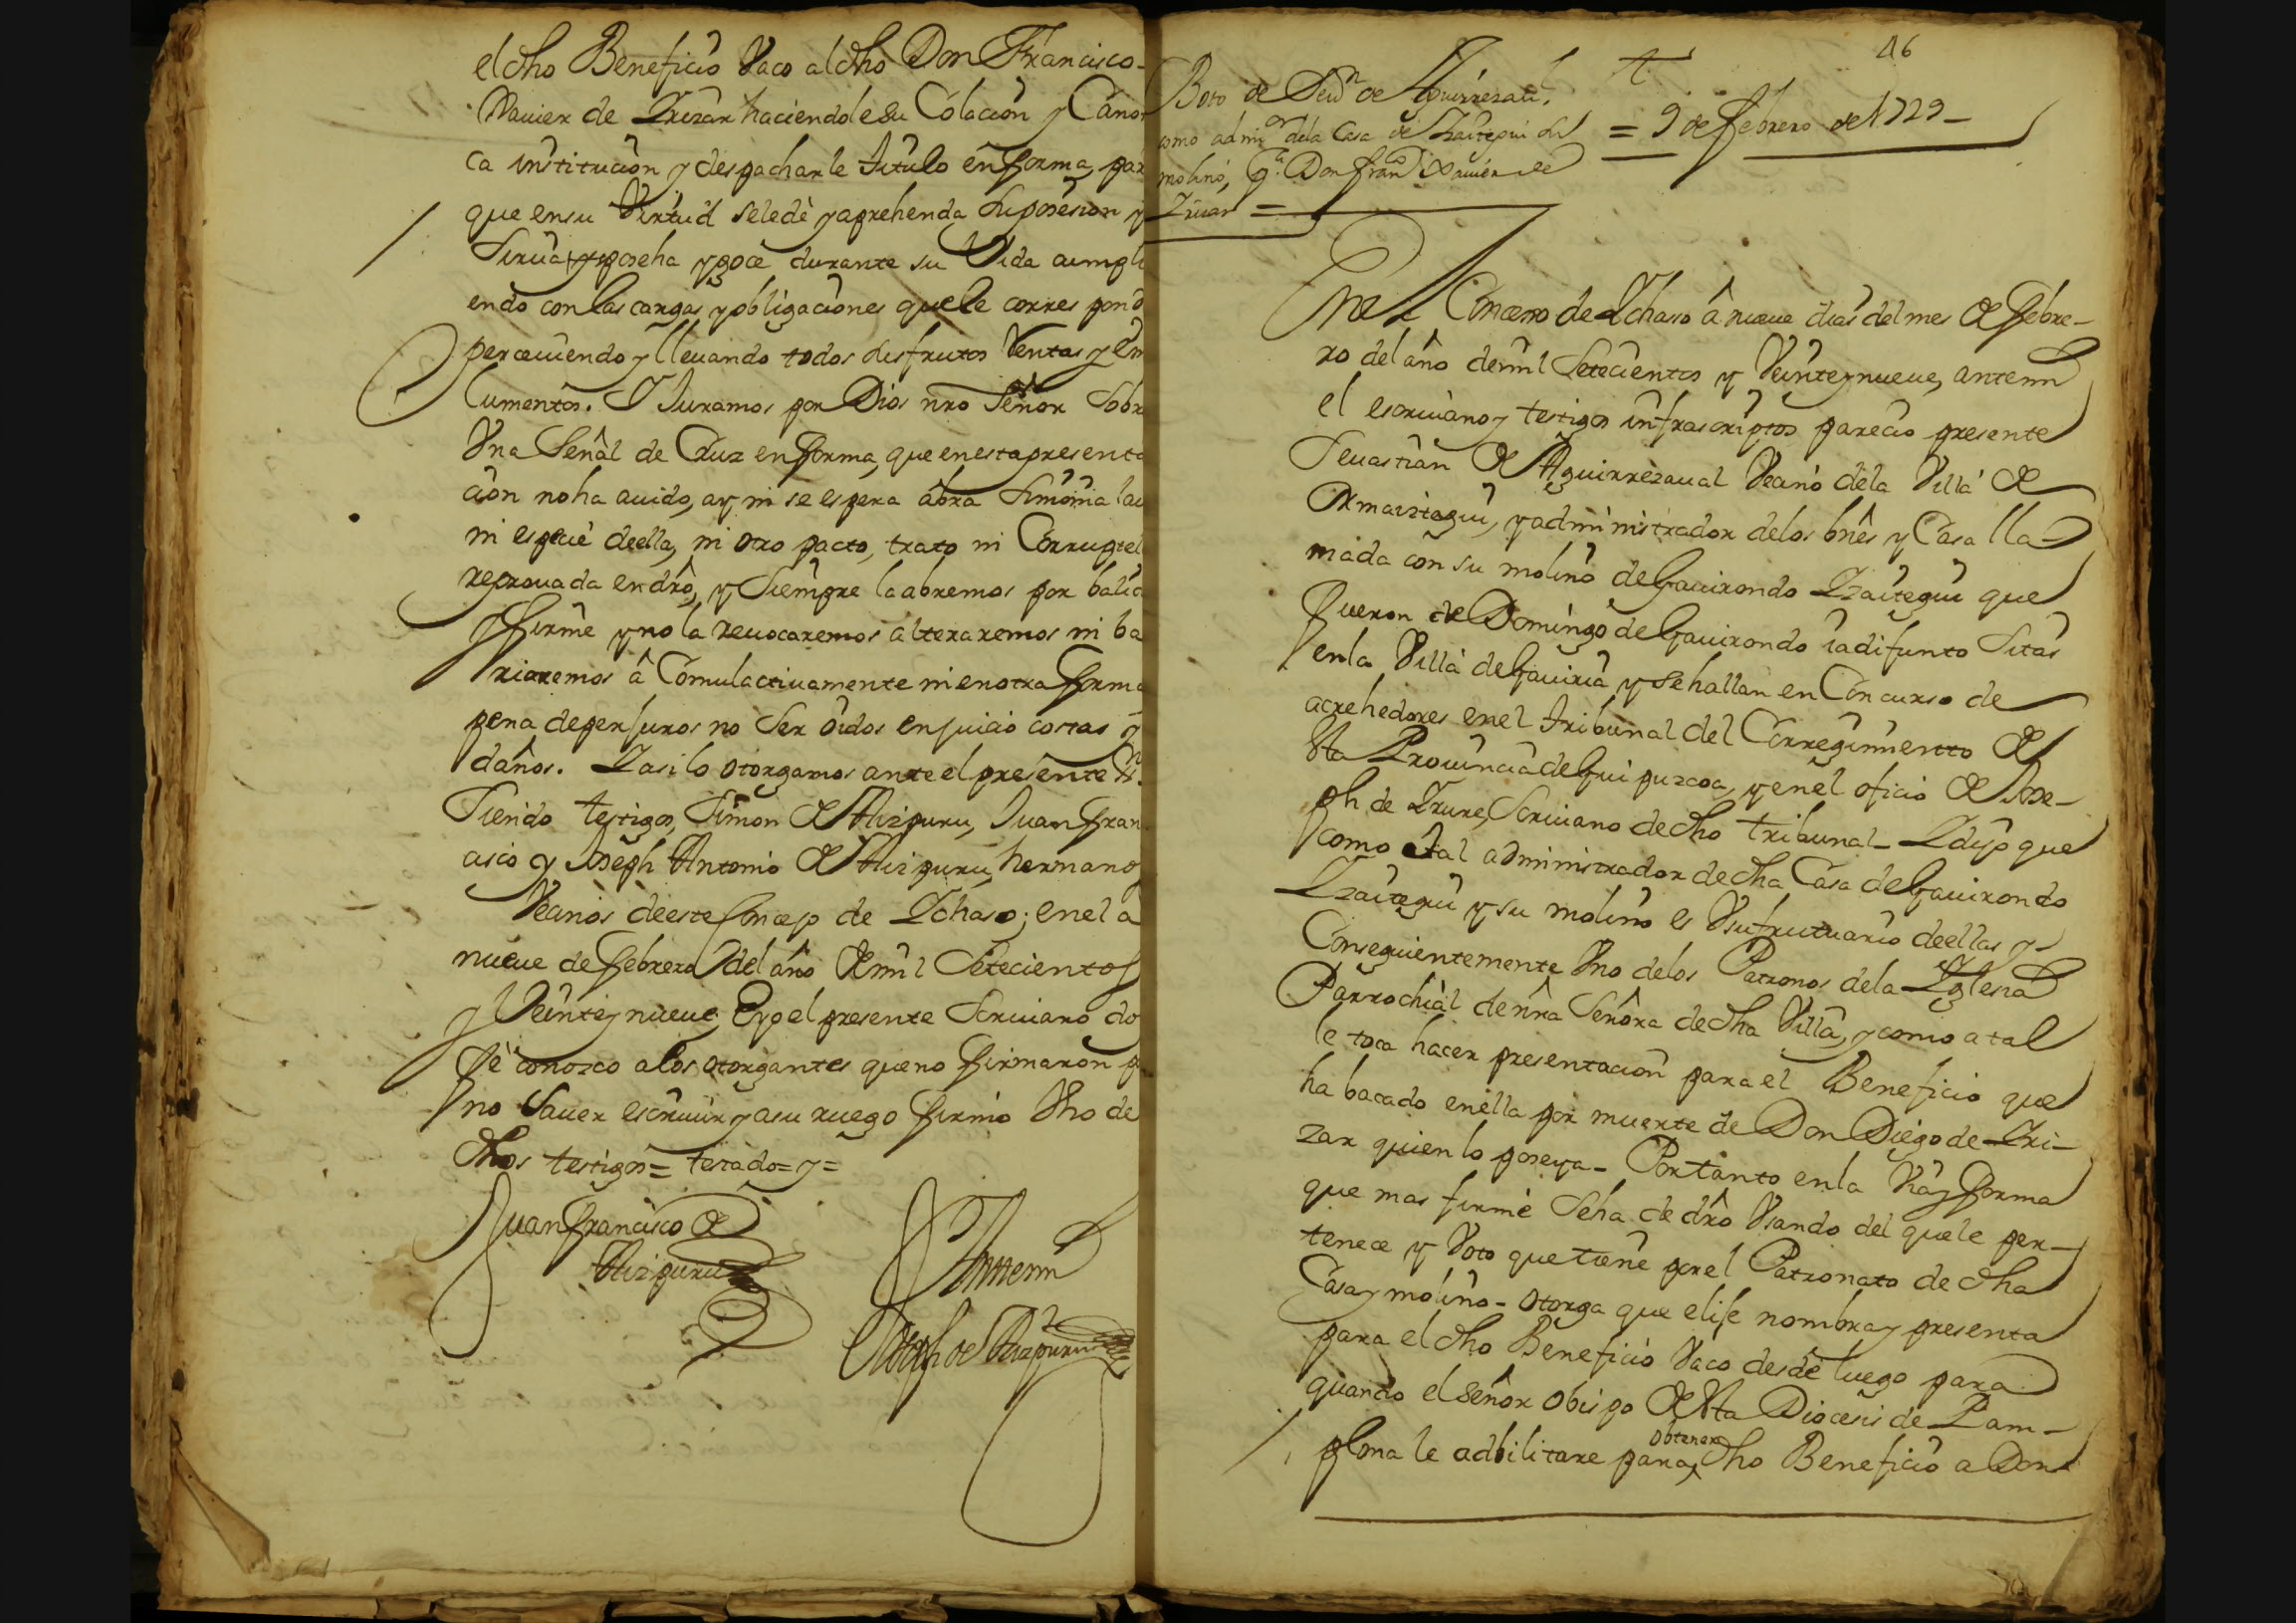 el dho Beneficio Vaco al dho Don Francisco
Xauier de Yrizar haciendole su Colacion y Cano
ca institucion y despacharle titulo en forma, par
que en su Virtud se le dè y aprehenda su posesion y
Sirua y poseha y goce durante su Vida cumpli
endo con las cargas y obligaciones que le correspond
perceuiendo y lleuando todos sus frutos Rentas y em
lumentos. I Juramos por Dios nro Señor Sobr
Vna Señal de Cruz en forma, que en esta presenta
cion no ha auido, ay ni se espera abra Simonia la
ni especie de ella, ni otro pacto, trato ni Corruptel
reprouada en dro, y Siempre la abremos por balid
y firme y no la reuocaremos alteraremos ni ba
riaremos â Comulactiuamente ni en otra forma
pena de perjuros no Ser oidos en juicio costas y
daños. Y asi lo otorgamos ante el presente
Siendo testigos, Simon de Aizpuru, Juan Fran
cisco y Joseph Antonio de Aizpuru hermanos
Vecinos de este Concejo de Ychaso; en el a
nueue de Febrero del año de mil Setecientos
y Veinte y nueue, E yo el presente Scriuano do
fè conozco a los otorgantes que no firmaron p
no Sauer escriuir y a su ruego firmo Vno de
dhos testigos = testado = y =
Juan Francisco de
Aizpuru
Antemi
Joseph de Aizpuru
46
Boto de Seun de Aguirrezaual,
como admor dela Casa de Yzaitegui su
molino, pa Don Franco Xauier de
Yrizar =
= 9 de febrero de 1729 -
En el Concejo de Ychaso â nueue dias del mes de Febre-
ro del año de mil Setecientos y Veinte y nueue, ante mi
el escriuano y testigos infrascriptos parecio presente
Seuastian de Aguirrezaual Vecino dela Villa de
Ormaiztegui, y administrador delos bnes y Casa lla-
mada con su molino de Gauirondo Yzaitegui que
fueron de Domingo de Gauirondo ia difunto Sitas
en la Villa de Gauiria y se hallan en Concurso de
acrehedores en el tribunal del Corregimiento de
esta Prouincia de Guipuzcoa, y en el oficio de Jose-
ph de Yrure, Scriuano de dho tribunal - Y dijo que
como tal administrador de dha Casa de Gauirondo
Yzaitegui y su molino es Vsufrutuario de ellas y
Conseguientemente Vno delos Patronos dela Yglesia
Parrochial de nra Señora de dha Villa, y como a tal
le toca hacer presentacion para el Beneficio que
ha bacado en ella por muerte de Don Diego de Yri-
zar quien lo poseya - Por tanto en la Via y forma
que mas firme Seha de dro Vsando del que le per-
tenece y Voto que tiene por el Patronato de dha
Casa y molino - otorga que elije nombra y presenta
para el dho Beneficio Vaco desde luego para
quando el Señor Obispo de esta Diocesis de Pam-
plona le adbilitare para obtener dho Beneficio a Don